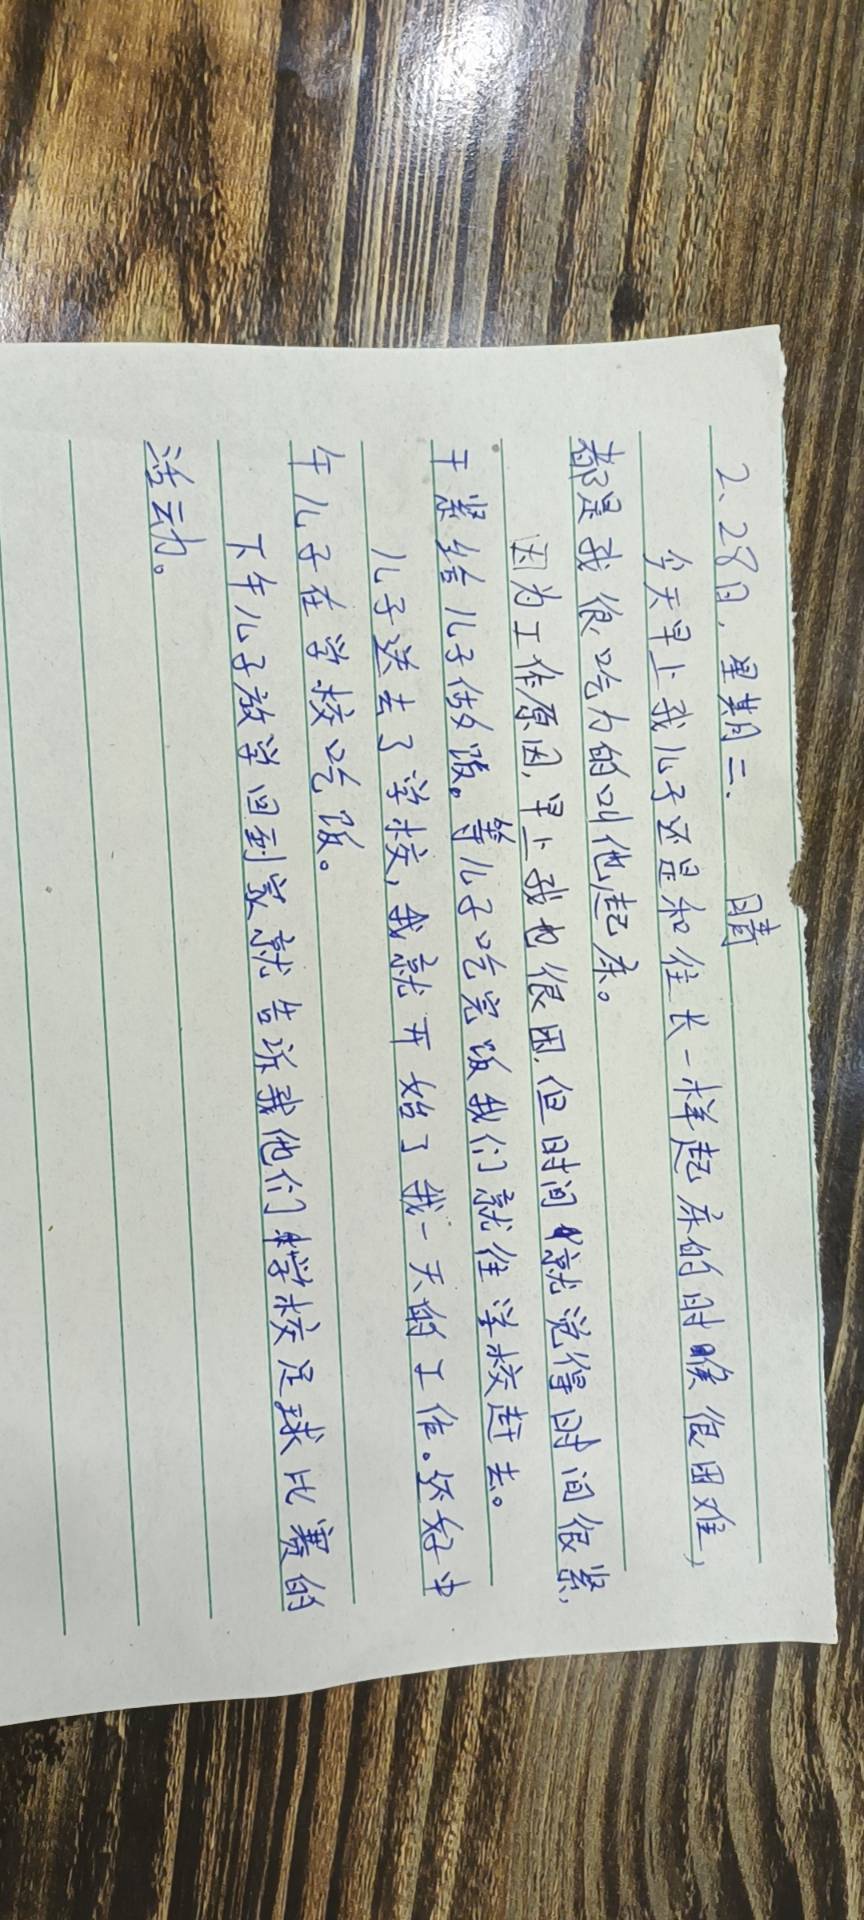 2、28日，星期二、 晴
今天早上我儿子还是和往长一样起床的时候很困难，
都是我很吃力的叫他起床。
因为工作原因，早上我也很困，但时间就觉得时间很紧，
干紧给儿子做饭。等儿子吃完饭我们就往学校赶去。
儿子送去了学校，我就开始了我一天的工作。还好中
午儿子在学校吃饭。
下午儿子放学回到家就告诉我他们学校足球比赛的
活动。